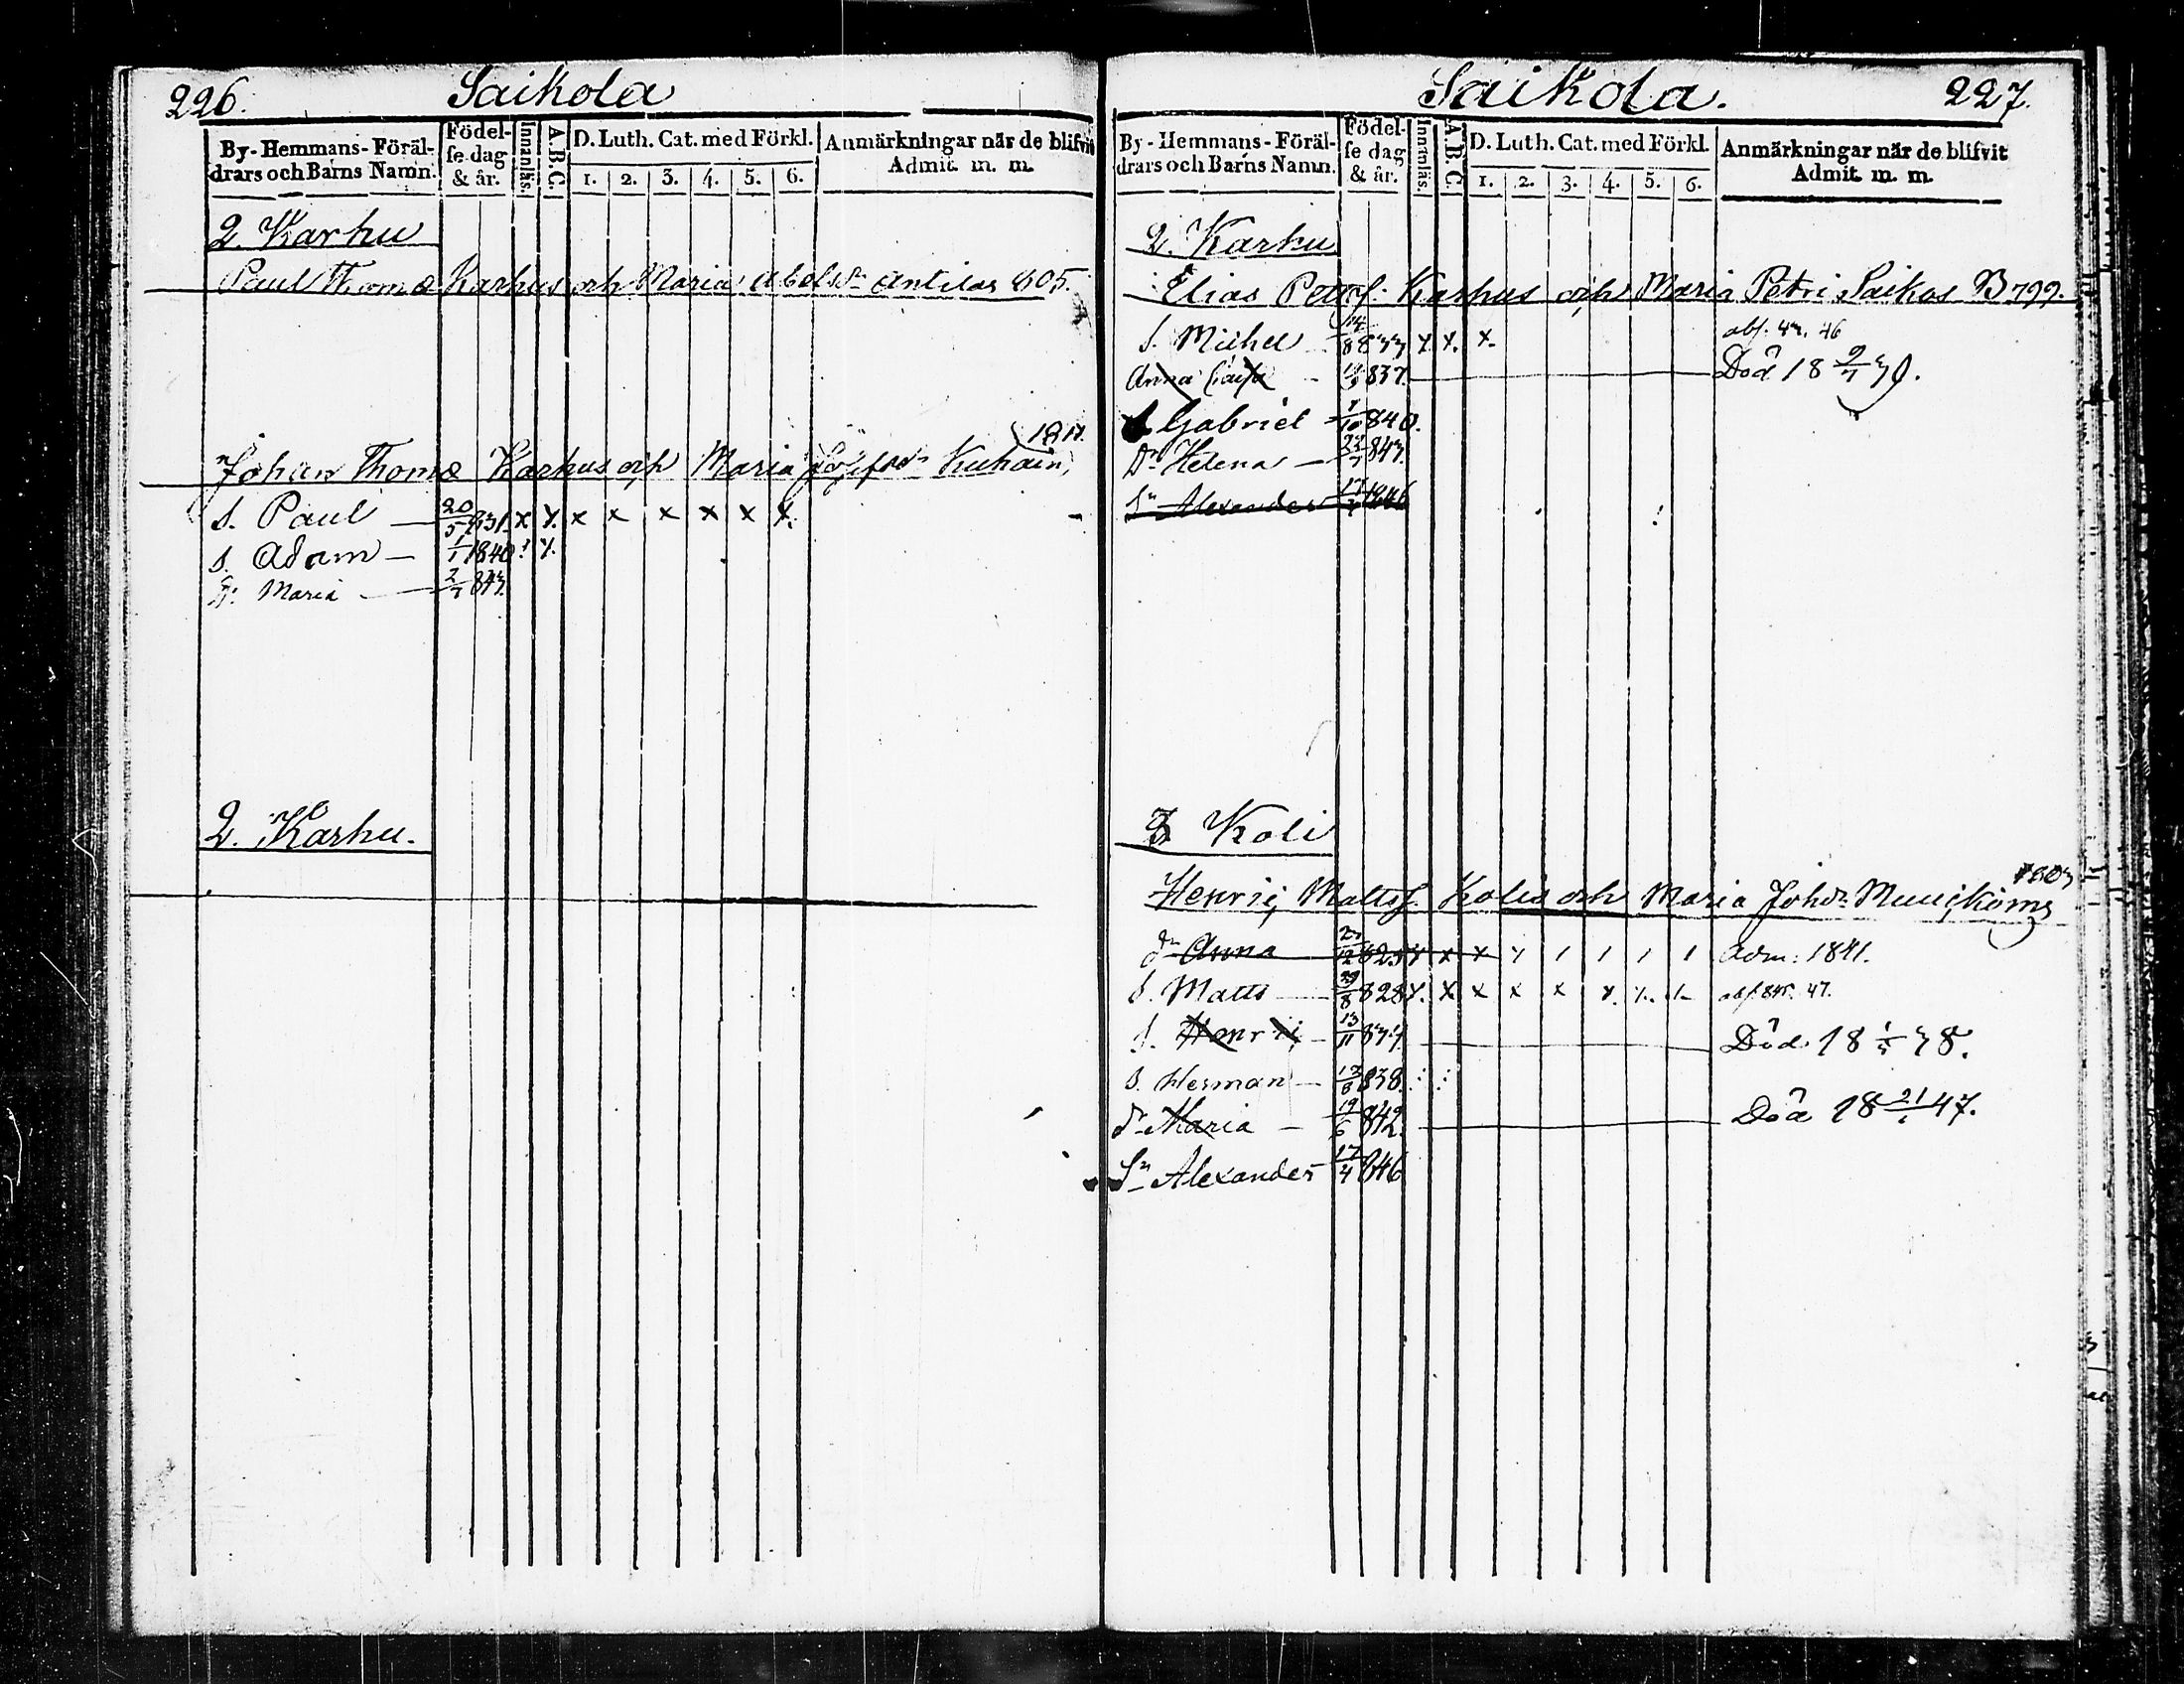 226. Saikola
By-Hemmans-Föräldrars och Barns Namn. Födelse dag & år. Innanläs. A.B.C. D. Luth. Cat. med Förkl. 1. 2. 3. 4. 5. 6. Anmärkningar när de blifvit Admit. m. m.
2. Karhu
Paul Thomæ Karhus och Maria Abelsdr Antilas 805.
Johan Thomæ Karhus och Maria
S. Paul 20/5 831 x x x x x x x x
S. Adam 1/1 1840
Dr Maria
2. Karhu.
Saikola. 227.
By-Hemmans-Föräldrars och Barns Namn. Födelse dag & år. Innanläs. A.B.C. D. Luth. Cat. med Förkl. 1. 2. 3. 4. 5. 6. Anmärkningar när de blifvit Admit. m. m.
2. Karhu
Elias Petrs. Karhus och Maria Petri Saikas B 799.
S. Michel x x x abs. 46
Anna 837. Död
S Gabriel 840.
Dr Helena
Sn Alexander 1846
3 Koli
Henric Matts. Kolis och Maria Johdr
dr Anna Adm: 1841.
S. Matts 828 x x x x abs. 845. 47.
S. Henric 13/11 Död 18 38.
S. Herman 838.
dr Maria 19/6 842. Död 18 21/1 47.
Sn Alexander 17/4 846